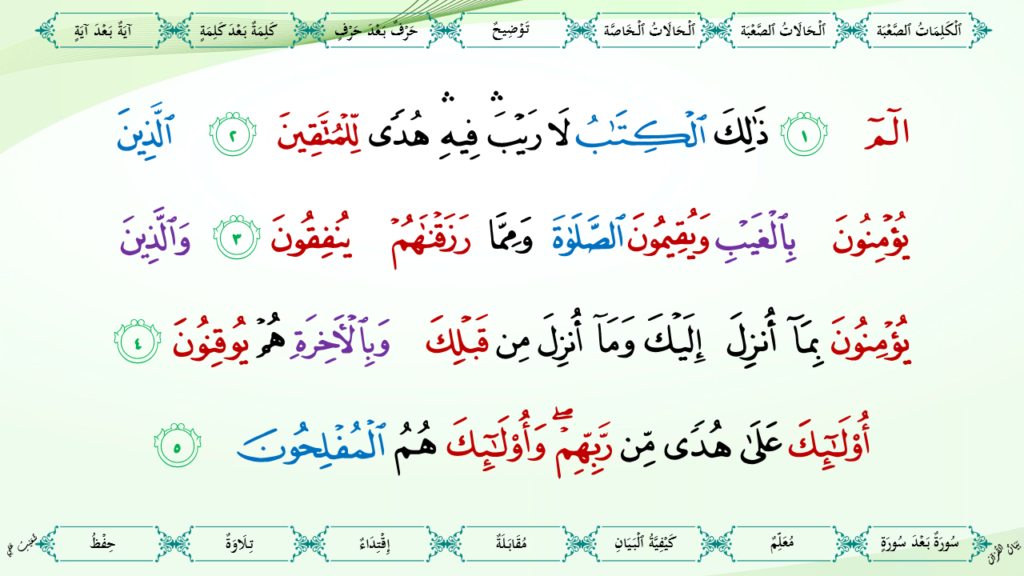 ٱلْكَلِمَاتُ ٱلصَّعْبَة ٱلْحَالَاتُ ٱلصَّعْبَة ٱلْحَالَاتُ ٱلْخَاصَّة تَوْضِيحٌ حَرْفٌ بَعْدَ حَرْفٍ كَلِمَةٌ بَعْدَ كَلِمَةٍ آيَةٌ بَعْدَ آيَةٍ
الٓمٓ ١ ذَٰلِكَ ٱلْكِتَٰبُ لَا رَيْبَ ۛ فِيهِ ۛ هُدًى لِّلْمُتَّقِينَ ٢ ٱلَّذِينَ
يُؤْمِنُونَ بِٱلْغَيْبِ وَيُقِيمُونَ ٱلصَّلَوٰةَ وَمِمَّا رَزَقْنَٰهُمْ يُنفِقُونَ ٣ وَٱلَّذِينَ
يُؤْمِنُونَ بِمَآ أُنزِلَ إِلَيْكَ وَمَآ أُنزِلَ مِن قَبْلِكَ وَبِٱلْأَخِرَةِ هُمْ يُوقِنُونَ ٤
أُوْلَٰٓئِكَ عَلَىٰ هُدًى مِّن رَّبِّهِمْ ۖ وَأُوْلَٰٓئِكَ هُمُ ٱلْمُفْلِحُونَ ٥
سُورَةٌ بَعْدَ سُورَةٍ مُعَلِّمٌ كَيْفِيَّةُ ٱلْبَيَانِ مُقَابَلَةٌ إِقْتِدَاءٌ تِلَاوَةٌ حِفْظٌ
بَيَانُ القُرْآن